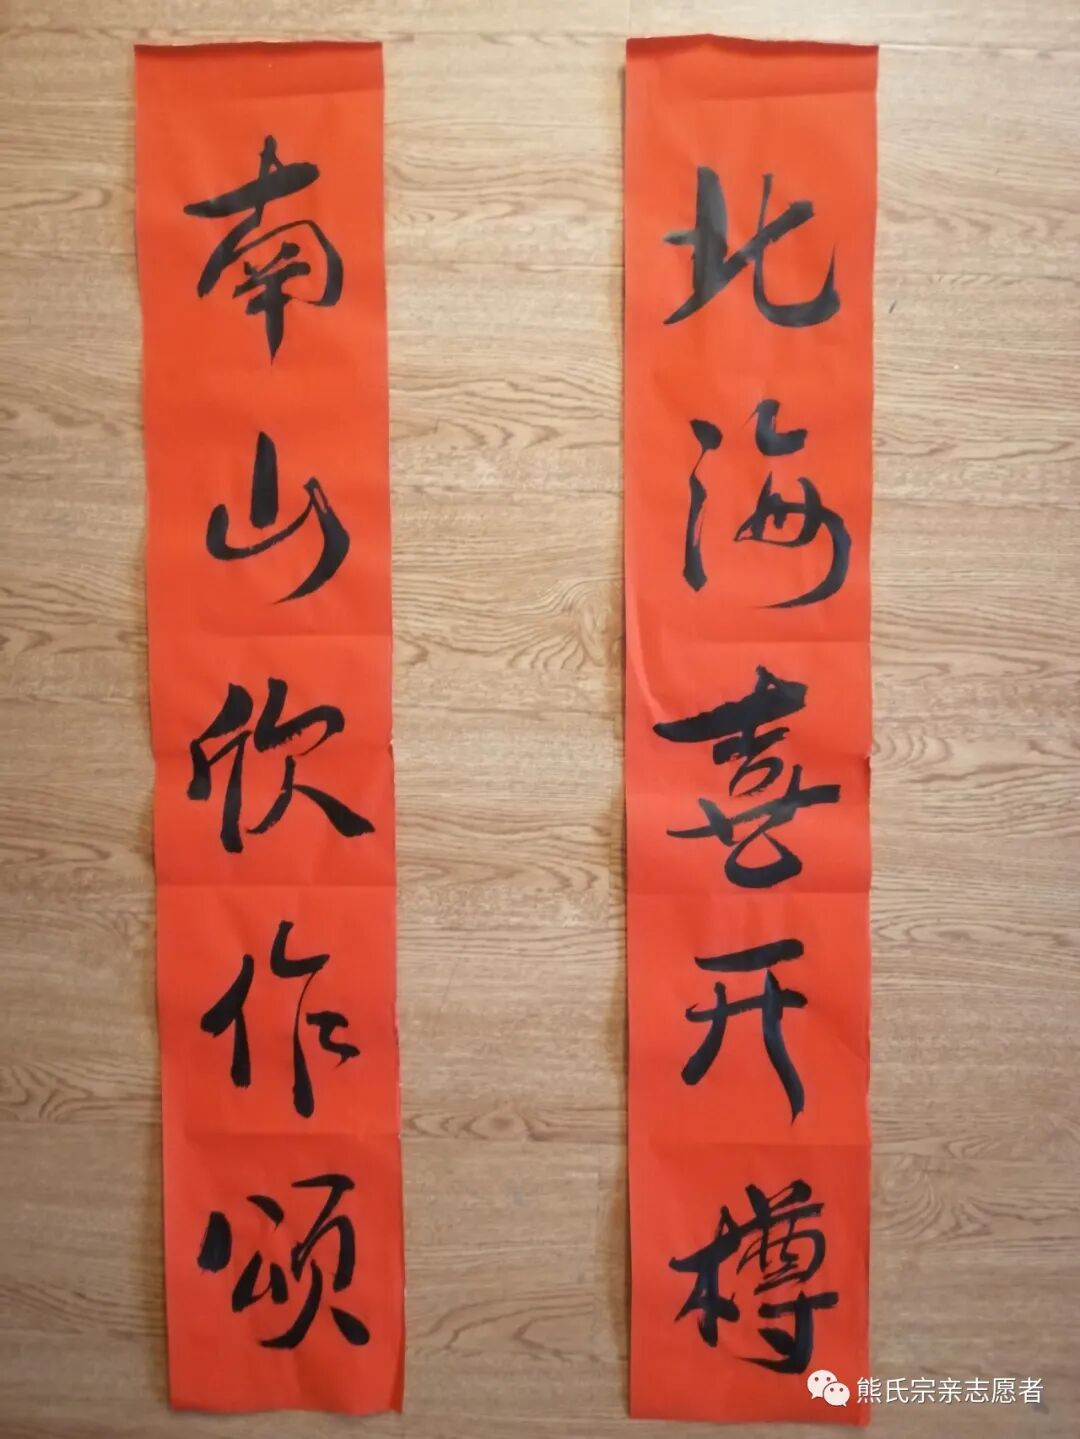 北海喜开樽
南山欣作颂
熊氏宗亲志愿者